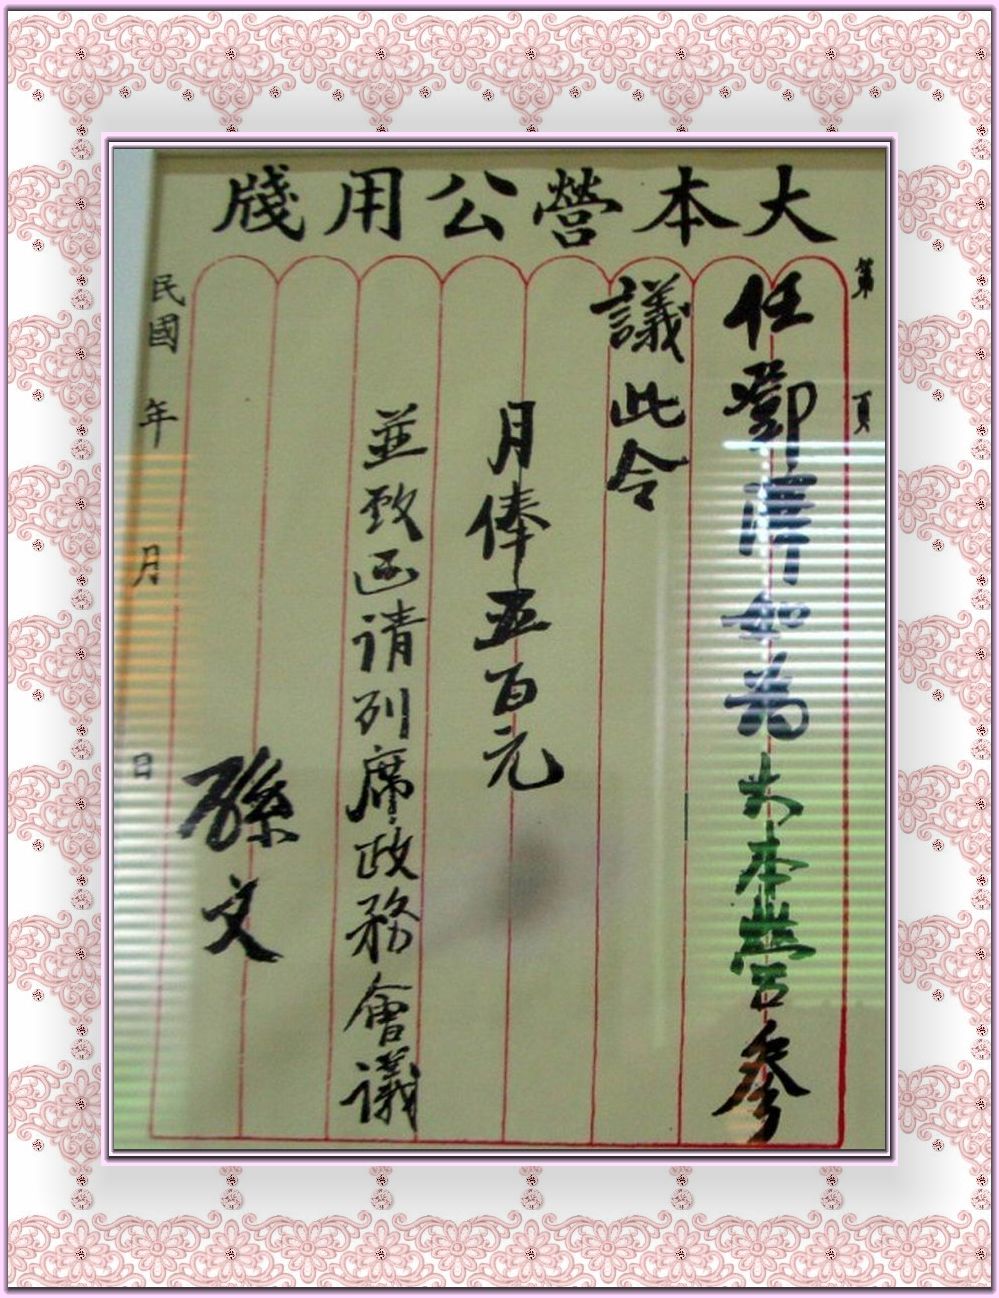 大本營公用牋
第 頁
任鄧澤如為大本營參
議此令
月俸五百元
並致函請列席政務會議
孫文
民國 年 月 日